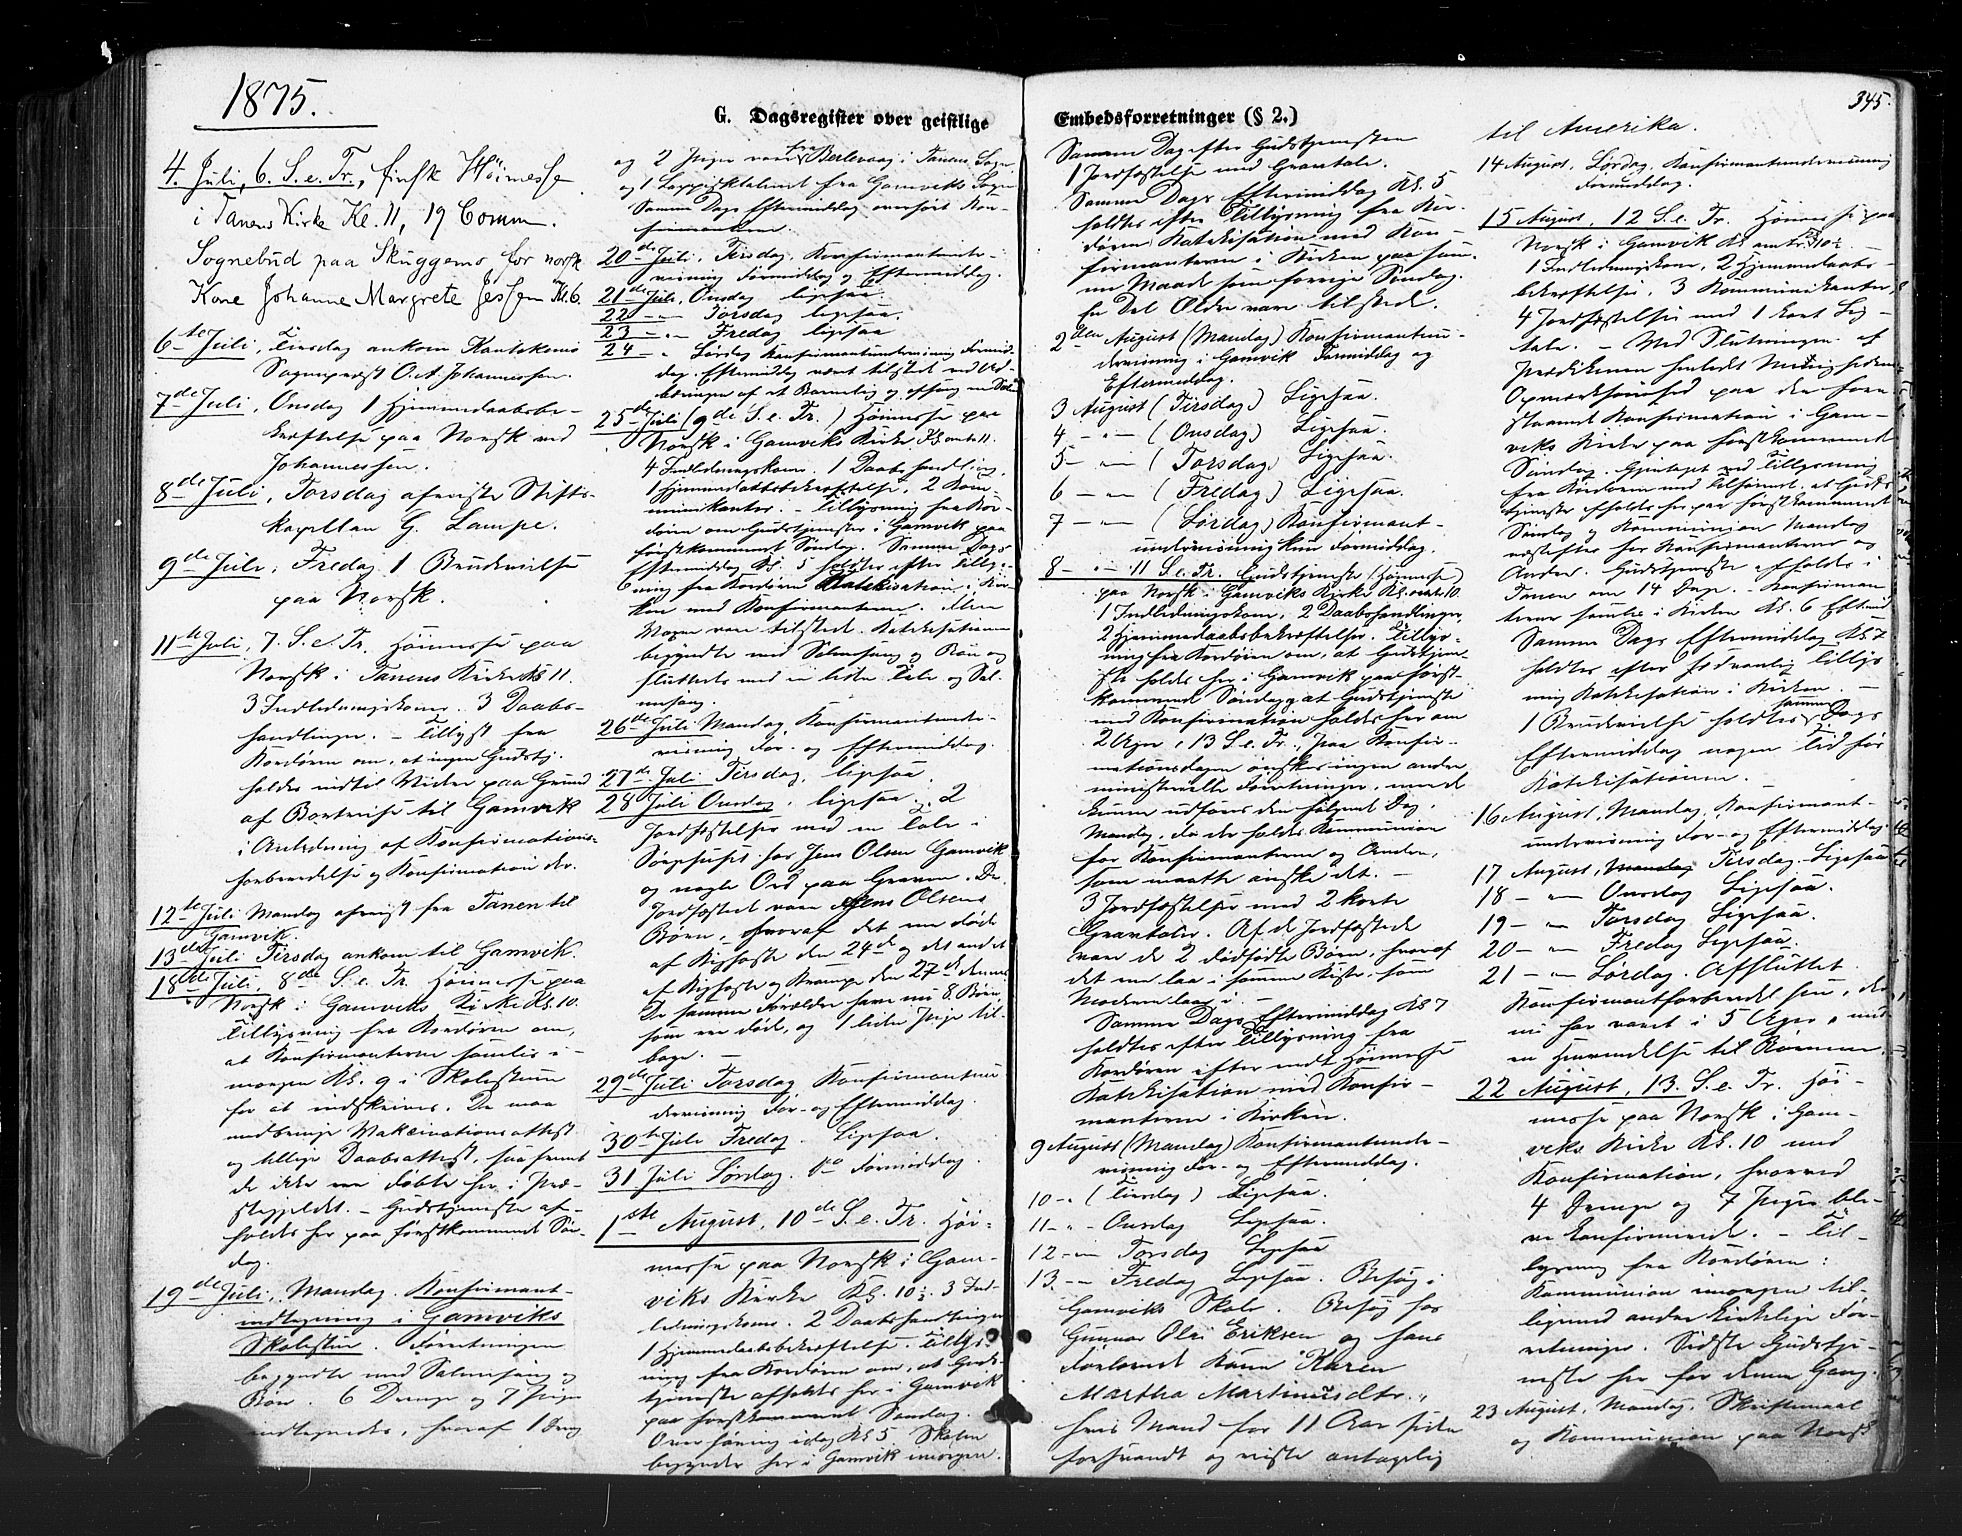 1875.
G. Dagsregister over geistlige
Embedsforretninger (§ 2.)
345.
4. Juli, 6. S. e. Tr., finsk Høimesse
i Tanens Kirke Kl. 11, 19 Comm.
Sognebud paa Skuggemo for norsk
Kone Johanne Margrete Jessen Kl. 6.
6te Juli, Tirsdag ankom
Sogneprest O. A. Johannessen.
7de Juli, Onsdag 1 Hjemmedaabsbe-
kræftelse paa Norsk ved
Johannessen.
8de Juli, Torsdag afreiste Stifts-
kapellan G. Lampe.
9de Juli, Fredag 1 Brudevielse
paa Norsk.
11te Juli, 7. S. e. Tr. Høimesse paa
Norsk i Tanens Kirke Kl. 11.
3 Indledningskoner. 3 Daabs-
handlinger. – Tillyst fra
Kordøren om, at ingen Gudstj.
holdes indtil Videre paa Grund
af Bortreise til Gamvik
i Anledning af Konfirmations-
forberedelse og Konfirmation der.
12te Juli Mandag afreist fra Tanen til
Gamvik.
13de Juli Tirsdag ankom til Gamvik.
18de Juli, 8de S. e. Tr. Høimesse paa
Norsk i Gamviks Kirke Kl. 10.
Tillysning fra Kordøren om,
at Konfirmanterne samles i-
morgen Kl. 9 i Skolestuen
for at indskrives. De maa
medbringe Vakcinationsattest
og tillige Daabsattest, saafremt
de ikke ere døbte her i Præ-
stegjeldet. – Gudstjeneste af-
holdes her paa førstkommende Søn-
dag.
19de Juli, Mandag. Konfirmant-
indtegning i Gamviks
Skolestue. Forretningen
begyndte med Salmesang og
Bøn. 6 Drenge og 7 Piger
indtegnedes, hvoraf 1 Dreng
og 2 Piger vare fra Berlevaag i Tanens Sogn
og 1 fra Gamviks Sogn
Samme Dags Eftermiddag Kon-
firmanterne.
20de Juli, Tirsdag, Konfirmantunder-
visning Formiddag og Eftermiddag.
21de Juli, Onsdag ligesaa.
22 – „ – Torsdag ligesaa.
23 – „ – Fredag ligesaa
24 – „ Lørdag Konfirmantundervisning Formid-
dag. Eftermiddag været tilstede ved
25de Juli (9de S. e. Tr.) Høimesse paa
Norsk i Gamviks Kirke Kl. 11.
4 Indledningskoner. 1 Daabshandling,
1 Hjemmedaabsbekræftelse, 2 Kom-
munikanter. – Tillysning fra Kor-
døren om Gudstjeneste i Gamvik paa
førstkommende Søndag. Samme Dags
Eftermiddag Kl. 5 holdtes efter Tillys-
ning fra Kordøren Katekisation i Kir-
ken med Konfirmanterne.
vare tilstede. Katekisationen
begyndte med Salmesang og Bøn og
sluttedes med en liden Tale og Sal-
mesang.
26de Juli Mandag, Konfirmantunder-
visning For- og Eftermiddag.
27de Juli Tirsdag, ligesaa.
28 Juli Onsdag, ligesaa. 2
Jordfæstelser med en Tale i
Sørgehuset for Jens Olsen Gamvik
og nogle Ord paa Graven. De
Jordfæstede vare Jens Olsens
Børn, hvoraf det ene døde
af Kighoste den 24de og det andet
af Kighoste og Krampe den 27de dennes.
De samme Forældre have nu 8 Børn,
som ere døde, og 1 liden Pige til-
bage. –
29de Juli Torsdag Konfirmantun-
dervisning For- og Eftermiddag.
30te Juli Fredag. Ligesaa.
31 Juli Lørdag. Do Formiddag.
1ste August, 10de S. e. Tr. Høi-
messe paa Norsk i Gam-
viks Kirke Kl. 10½. 3 Ind-
ledningskoner. 2 Daabshandlinger
1 Hjemmedaabsbekræftelse. Tillys-
ning fra Kordøren om, at Guds-
tjeneste afholdes her i Gamvik
paa førstkommende Søndag.
Overhøring idag Kl. 5 Skolen
begynder her i Gamvik imorgen.
Samme Dag efter Gudstjenesten
1 Jordfæstelse med Gravtale.
Samme Dags Eftermiddag Kl. 5
holdtes efter Tillysning fra Kor-
døren Katekisation med Kon-
firmanterne i Kirken paa sam-
me Maade som forrige Søndag.
En Del Ældre vare tilstede.
2den August (Mandag) Konfirmantun-
dervisning i Gamvik Formiddag og
Eftermiddag.
3 August (Tirsdag) Ligesaa.
4 – „ – (Onsdag) Ligesaa.
5 – „ – (Torsdag) Ligesaa.
6 – „ – (Fredag) Ligesaa.
7 – „ – (Lørdag) Konfirmant-
undervisning kun Formiddag.
8 – „ – 11 S. e. Tr. Gudstjeneste (Høimesse)
paa Norsk i Gamviks Kirke Kl. 10.
1 Indledningskone, 2 Daabshandlinger,
2 Hjemmedaabsbekræftelser. Tillys-
ning fra Kordøren om, at Gudstjene-
ste holdes her i Gamvik paa først-
kommende Søndag, at Gudstjeneste
med Konfirmation holdes her om
2 Uger, 13 S. e. Tr., paa Konfir-
mationsdagen ønskes ingen andre
ministerielle Forretninger, men de
kunne udføres den følgende Dag,
Mandag, da der holdes Kommunion
for Konfirmanterne og Andre,
som maatte ønske det. –
3 Jordfæstelser med 2 korte
Gravtaler. Af de Jordfæstede
vare de 2 dødfødte Børn, hvoraf
det ene laa i samme Kiste, som
Moderen laa i. –
Samme Dags Eftermiddag Kl. 7
holdtes efter Tillysning fra
Kordøren efter endt Høimesse
Katekisation med Konfir-
manterne i Kirken.
9 August (Mandag) Konfirmantunder-
visning For- og Eftermiddag.
10 – „ (Tirsdag) Ligesaa.
11 – „ – Onsdag Ligesaa.
12 – „ – Torsdag Ligesaa
13. – „ Fredag Ligesaa. Besøg i
Gamviks Skole. Besøg hos
Gunnar Olai Eriksen og hans
forlovede Kone Karen
Martha Martinusdtr.,
hvis Mand for 11 Aar siden
forsvandt og reiste antagelig
til Amerika.
14 August, Lørdag, Konfirmantundervisning
Formiddag.
15 August, 12 S. e. Tr. Høimesse paa
Norsk i Gamvik Kl. 10½
1 Indledningskone, 2 Hjemmedaabs-
bekræftelser, 3 Kommunikanter,
4 Jordfæstelser med 1 kort Lig-
tale. – Ved Slutningen af
Prædikenen henledet Menighedens
Opmærksomhed paa den fore-
staaende Konfirmation i Gam-
viks Kirke paa førstkommende
Søndag. Gjentaget ved Tillysning
fra Kordøren med Tilføiende, at Guds-
tjeneste afholdes her paa førstkommende
Søndag og Kommunion Mandag
næstefter for Konfirmanterne og
Andre. Gudstjeneste afholdes i
Tanen om 14 Dage. – Konfirman-
terne samles i Kirken Kl. 6 Efterm.
Samme Dags Eftermiddag Kl. 7
holdtes efter sædvanlig Tillys-
ning Katekisation i Kirken. –
1 Brudevielse holdtes samme Dags
Eftermiddag nogen Tid før
Katekisationen.
16 August, Mandag, Konfirmant-
undervisning For- og Eftermiddag.
17 August, Mandag Tirsdag. Ligesaa
18 – „ – Onsdag Ligesaa.
19 – „ – Torsdag Ligesaa.
20 – „ – Fredag Ligesaa.
21 – „ – Lørdag. Afsluttet
Konfirmantforberedelsen, der
nu har varet i 5 Uger, med
en Henvendelse til Børnene.
22 August, 13. S. e. Tr. Høi-
messe paa Norsk i Gam-
viks Kirke Kl. 10 med
Konfirmation, hvorved
4 Drenge og 7 Piger ble-
ve konfirmerede. – Til-
lysning fra Kordøren:
Kommunion imorgen til-
ligemed andre kirkelige For-
retninger. Sidste Gudstje-
neste her for denne Gang.
23 August, Mandag. Skriftemaal
og Kommunion paa Norsk